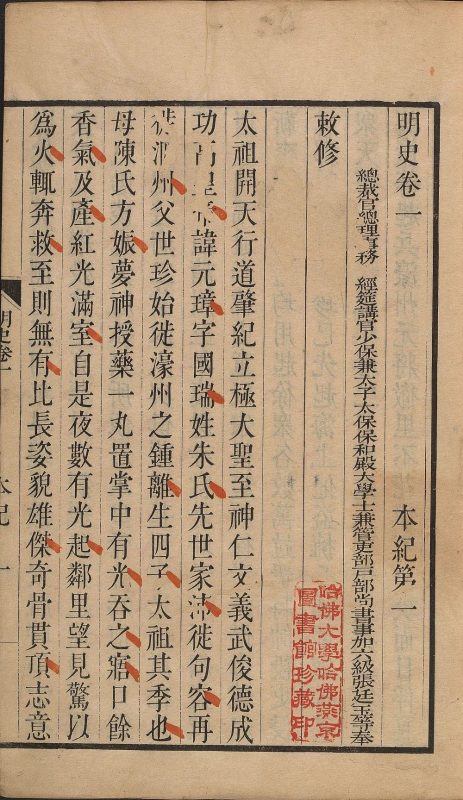 明史卷一 本紀第一
總裁官總理事務 經筵講官少保兼太子太保保和殿大學士兼管吏部戶部尚書事加六級張廷玉等奉
敕修
太祖開天行道肇紀立極大聖至神仁文義武俊德成
功高皇帝諱元璋字國瑞姓朱氏先世家沛徙句容再
徙泗州父世珍始徙濠州之鍾離生四子太祖其季也
母陳氏方娠夢神授藥一丸置掌中有光吞之寤口餘
香氣及產紅光滿室自是夜數有光起鄰里望見驚以
為火輒奔救至則無有比長姿貌雄傑奇骨貫頂志意
明史卷一 本紀 一
哈佛大學哈佛燕京
圖書館珍藏印